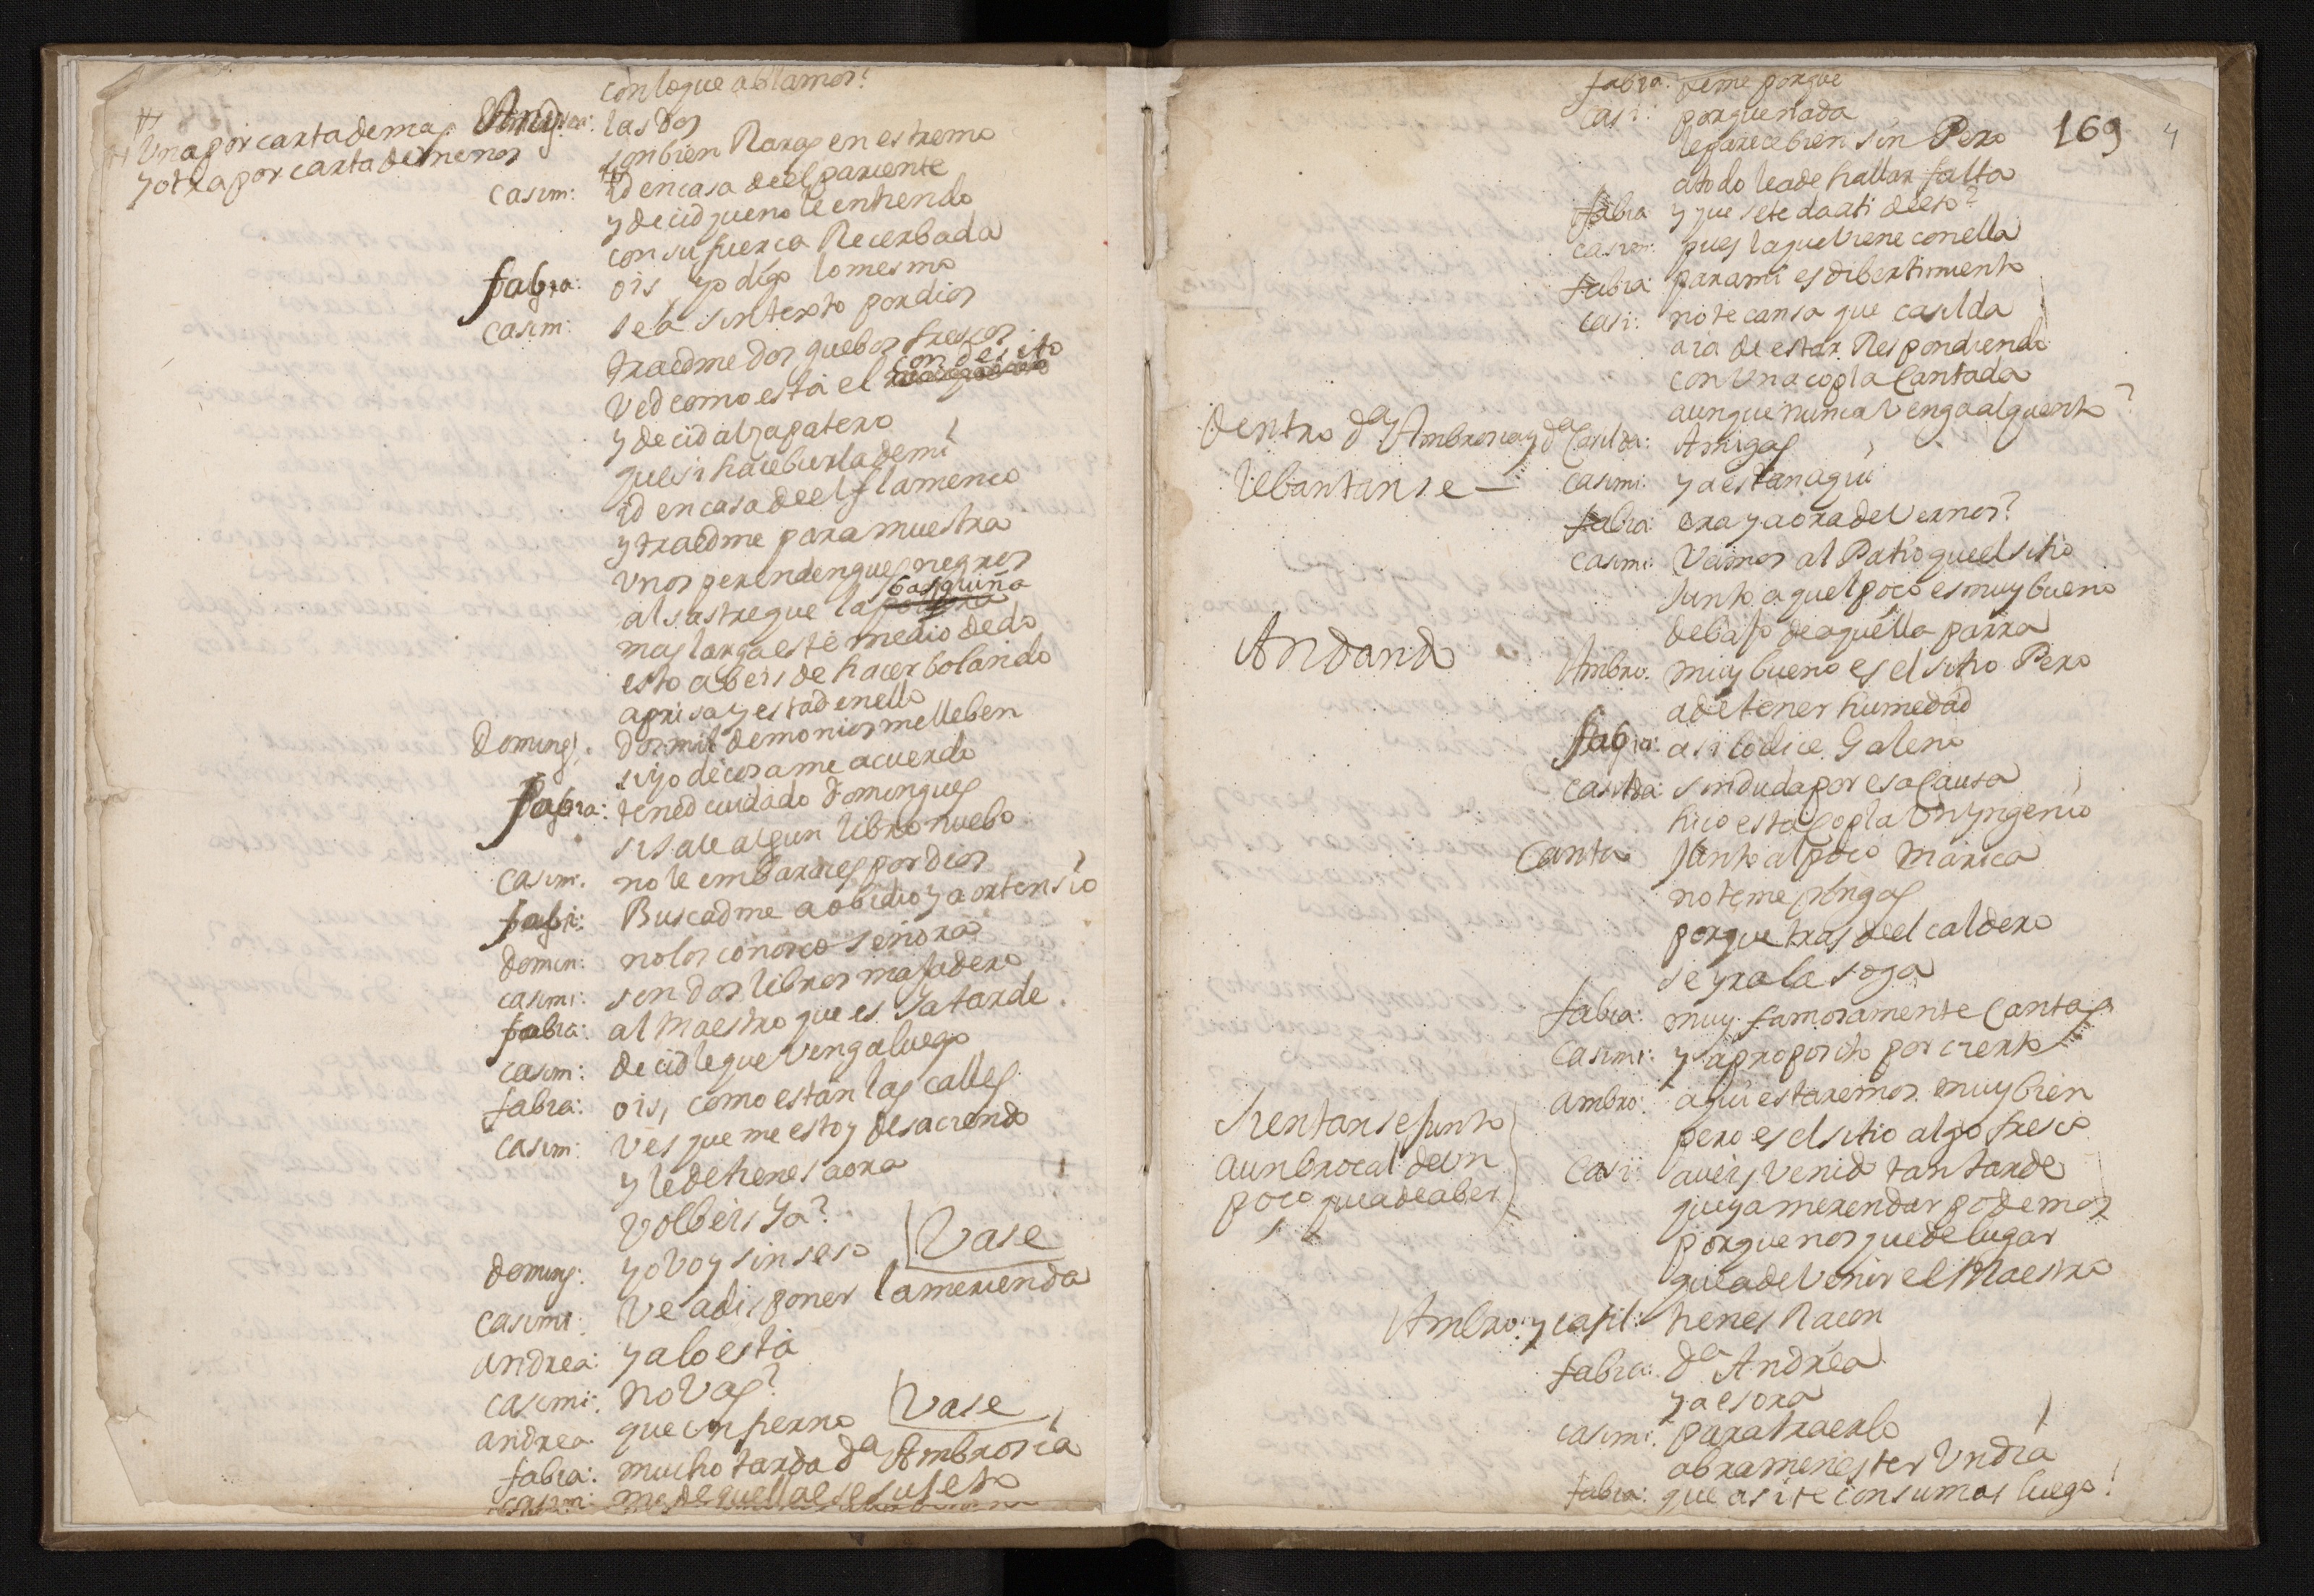 con loque ablamos?
# Una por carta demas
y otra por carta de menos
las Dos
son bien Raras en estremo
casim: #id en casa deel pariente
y decid queno le entiendo
con su fuerca Recerbada
fabia: ois yo digo lo mesmo
casim: sea sintexto por dios
traedme dos guebos frescos
Ved como esta el condesito
y decid al zapatero
que si hace burla de mi
id en casa deel flamenco
y traedme para muestra
unos perendengues negros
al sastre que la basquiña
mas larga esté medio dedo
esto abeis de hacer bolando
aprisa y estad en ello
Doming: Dos mil demonios me lleben
si yo de cosa me acuerdo
fabia: tened cuidado Domingues
si sale algun libro nuebo
casim: no le embaraceis por dios
fabi: Buscadme a obidio y a ortensio
Domin: nolos conozco señora
casimi: son dos libros majadero
fabia: al Maestro que es ya tarde
casim: decidle que venga luego
fabia: ois, como están las calles
casim: Ves que me estoy desaciendo
y le detienes aora
volbeis ya?
Doming: yo voy sin seso Vase
casimi: Ve a disponer la merienda
andrea: ya lo está
casimi: no Vas?
andrea que infierno Vase
fabia: mucho tarda Da Ambrosia
casim:
169 4
fabia: deme porque
casi: porque nada
le parece bien sin Pero
a todo le a de hallar falta
fabia y que sete da ati deeso?
casim: pues la que viene con ella
fabia para mi es dibertimiento
casi: no te cansa que casilda
aia de estar Respondiendo
con Una copla Cantada
aunque nunca Venga al quento?
Dentro da Ambrosia y da Casilda: Amigas
lebantanse — casimi: ya estan aqui
fabia: era ya ora de Vernos?
casimi: Vamos al Patio que el sitio
Junto aquel poço es muy bueno
debajo de aquella parra
Andando Ambro. muy bueno es el sitio Pero
a de tener humedad
fabia: asi lo dice Galeno
casilda: sin duda por esa Causa
hiço esta Copla Un yngenio
Canta Junto al poço Marica
no te me pongas
porque tras deel caldero
se yra la soga
fabia: muy famosamente Cantas
casimi: y a proposito por cierto
ambro: aqui estaremos muy bien
pero es el sitio algo fresco
Sientanse Junto
a un brocal de un
poço que a de aber
casi: aveis Venido tan tarde
que ya merendar podemos
porque nos quede lugar
que a de Venir el Maestro
Ambro: y casil: tienes Raçon
fabia: da Andrea
ya es ora
casimi: para traerlo
abra menester Un dia
fabia: que asi te consumas luego!